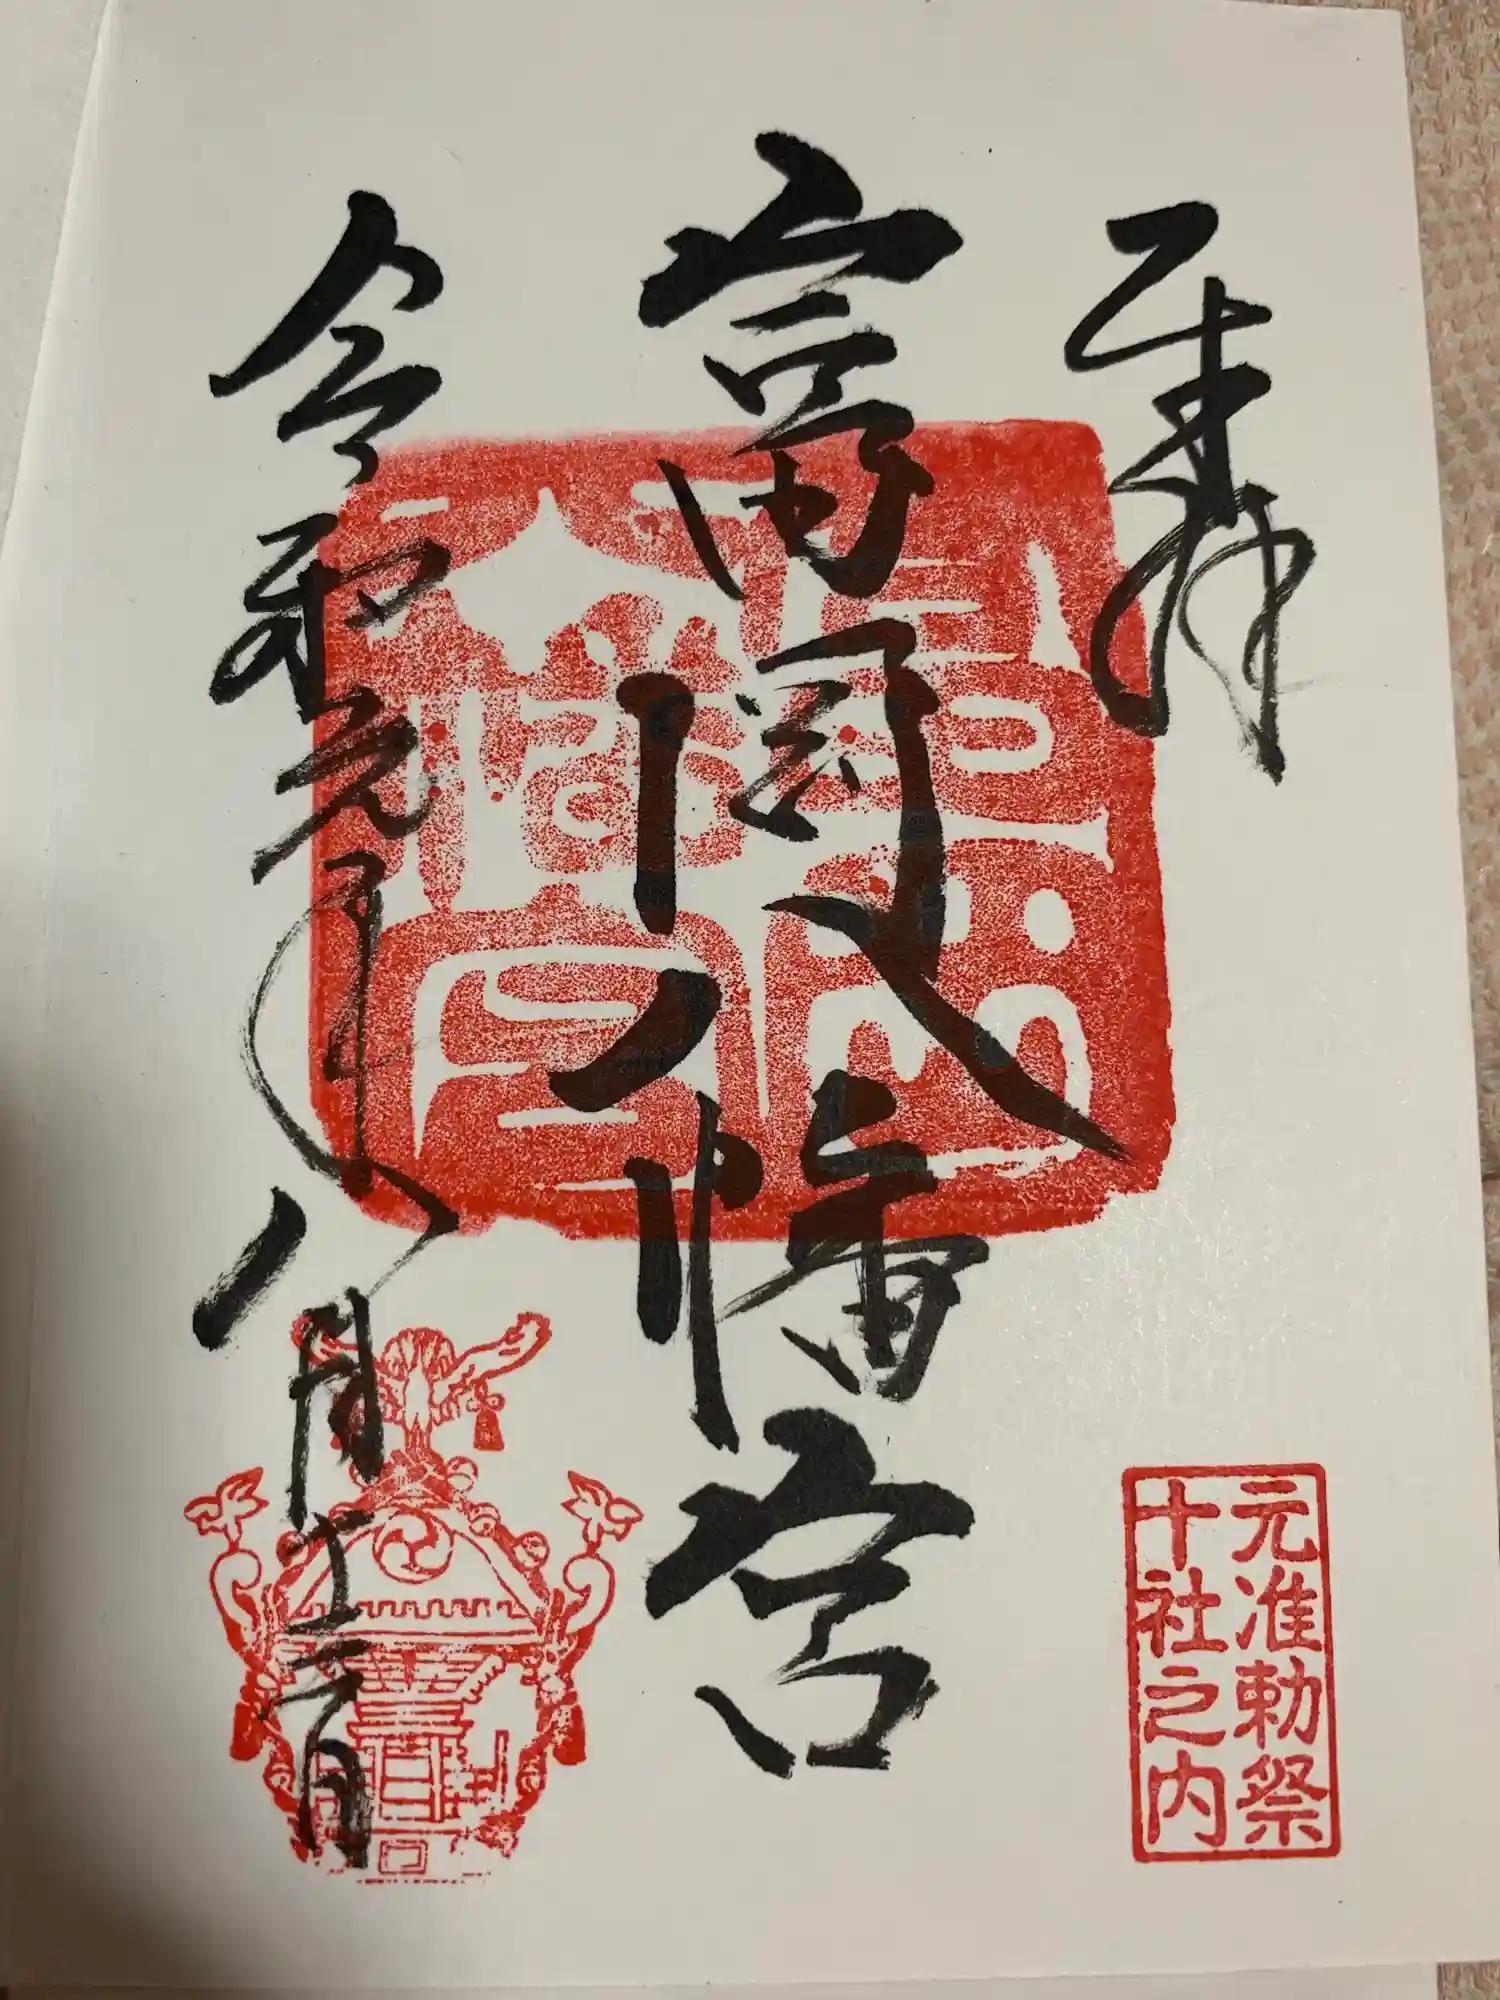 富岡八幡宮
令和元年八月十二日
富岡
八幡宮
元准勅祭
十社之内